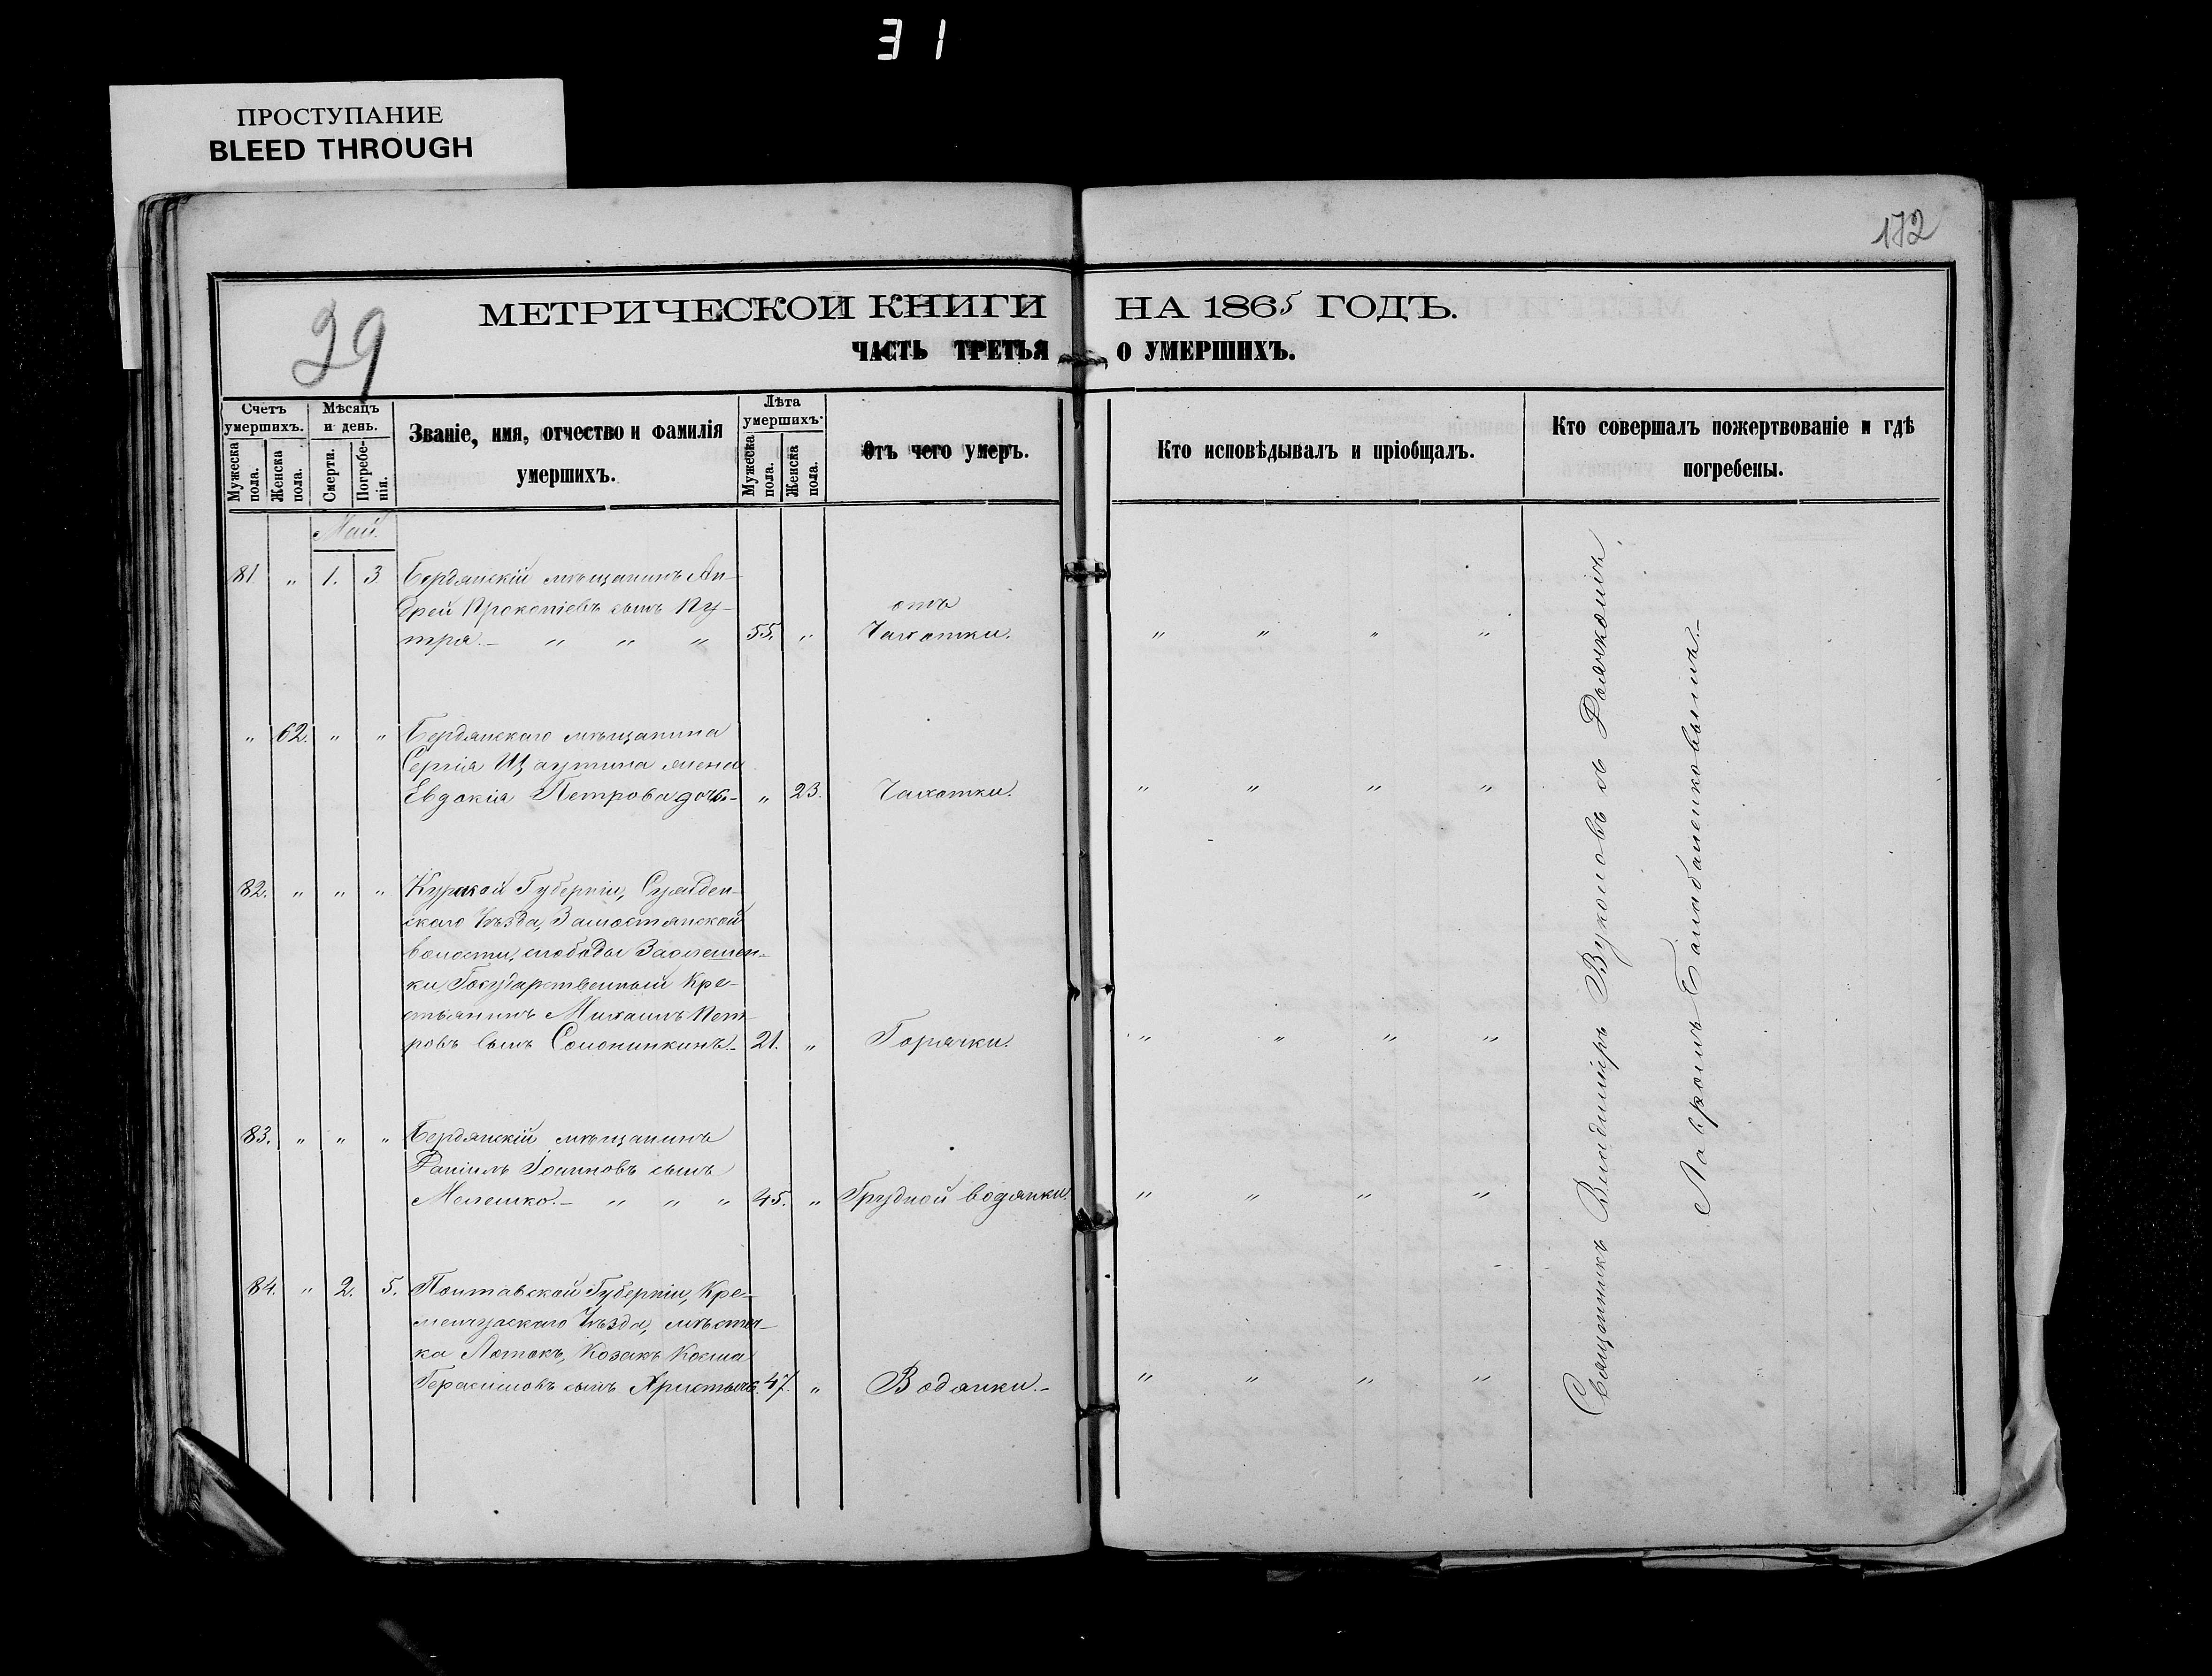 31
ПРОСТУПАНИЕ
BLEED THROUGH
172
29
МЕТРИЧЕСКОЙ КНИГИ НА 1865 ГОДЪ.
ЧАСТЬ ТРЕТЬЯ О УМЕРШИХЪ.
Счетъ умершихъ.
Мужеска пола.
Женска пола.
Мѣсяцъ и день.
Смерти.
Погребенія.
Званіе, имя, отчество и фамилія
умершихъ.
Лѣта умершихъ.
Мужеска пола.
Женска пола.
Отъ чего умеръ.
Кто исповѣдывалъ и пріобщалъ.
Кто совершалъ пожертвованіе и гдѣ
погребены.
Май.
81. " 1. 3. Бердянскій мѣщанинъ Ан-
дрей Прокопіевъ сынъ Пу- отъ
тря.- " " " 55. " Чахотки. " " " "
" 62. " " Бердянскаго мѣщанина
Сергія жена
Евдокія Петрова дочь- " 23. Чахотки. " " " "
82. " " " Курской Губерніи, Суджен-
скаго Уѣзда, Замостянской
волости, слободы
ки Государственный Кре-
стьянинъ Михаилъ Пет-
ровъ сынъ 21. " Горячки. " " " "
83. " " " Бердянскій мѣщанинъ
Даніилъ Іоанновъ сынъ
Мелешко.- " " " 45. " Грудной водянки. " " " "
84. " 2. 5. Полтавской Губерніи, Кре-
менчугскаго Уѣзда, мѣстеч-
ка Потокъ, Козакъ Косма
Герасимовъ сынъ 47. " Водянки.- " " " "
Священникъ Владиміръ Вуколовъ съ Дьячкомъ
Лавромъ